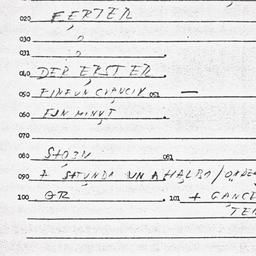 020 FERTER
030 ?
031 ?
040 DER ERSTER
050 FINFUNCVAUCIK 051 —
060 EIN MINUT
070
080 STO3N 081
090 A STUNDA UN A HALBA/ODER
100 QR 101 + GANCE
TEN